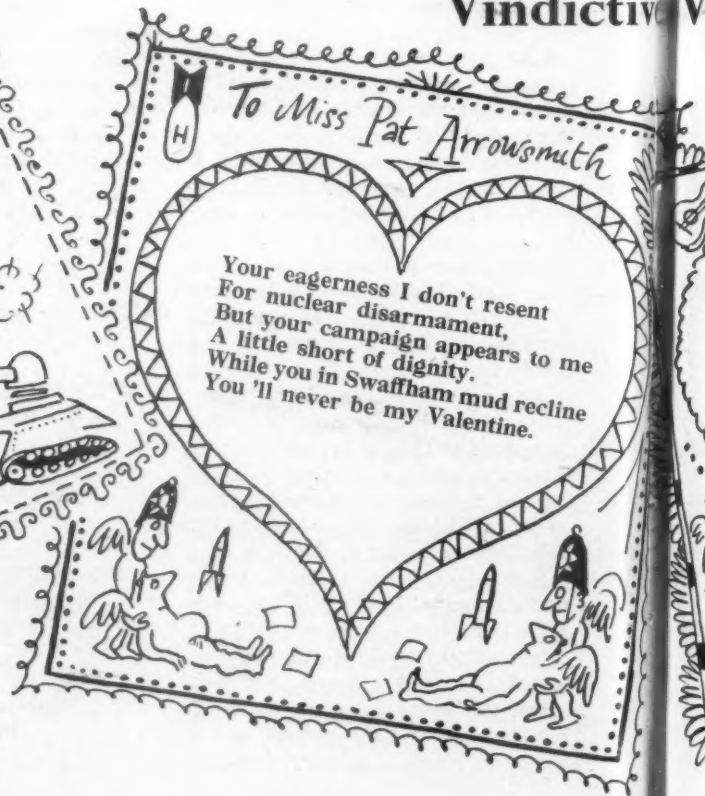 Vindictive V
H
To Miss Pat Arrowsmith
Your eagerness I don't resent
For nuclear disarmament,
But your campaign appears to me
A little short of dignity.
While you in Swaffham mud recline
You 'll never be my Valentine.